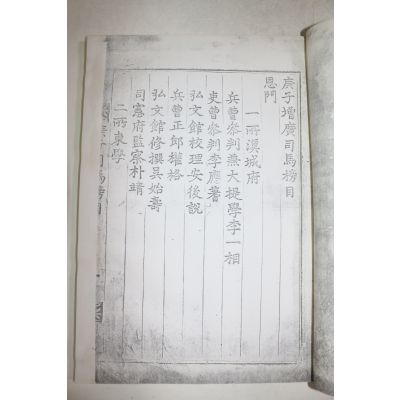 庚子增廣司馬榜目
恩門
一所漢城府
兵曹參判兼大提學李一相
吏曹參判李應蓍
弘文館校理安後說
兵曹正郎權格
弘文館修撰吳始壽
司憲府監察朴靖
二所東學
庚子司馬榜目